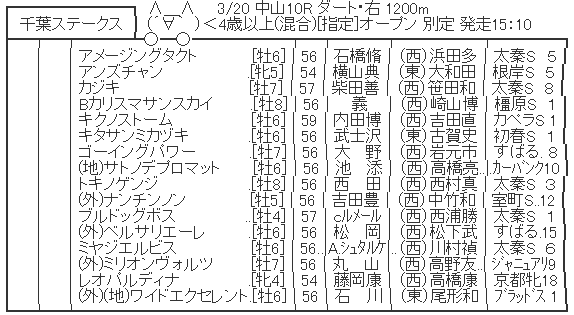 千葉ステークス
∧__∧ 3/20 中山10R ダート・右 1200m
( ´∀` )＜4歳以上(混合)[指定]オープン 別定 発走15:10
アメージングタクト [牡6] 56 石橋脩 (西)浜田多 太秦S 5
アンズチャン [牝5] 54 横山典 (東)大和田 根岸S 5
カジキ [牡7] 57 柴田善 (西)笹田和 太秦S 8
Bカリスマサンスカイ [牡8] 56 義 (西)崎山博 橿原S 1
キクノストーム [牡6] 59 内田博 (西)吉田直 カペラS 1
キタサンミカヅキ [牡6] 56 武士沢 (東)古賀史 初春S 1
ゴーイングパワー [牡7] 56 大野 (西)岩元市 すばる. 8
(地)サトノデプロマット [牡6] 56 池添 (西)高橋亮 カーバンク10
トキノゲンジ [牡8] 56 西田 (西)西村真 太秦S 3
(外)ナンチンノン [牡5] 56 吉田豊 (西)中竹和 室町S.12
ブルドッグボス [牡4] 57 cルメール (西)西浦勝 太秦S 1
(外)ベルサリエーレ [牡6] 56 松岡 (西)松下武 すばる.15
ミヤジエルビス [牡6] 56 Aシュタルケ (西)川村禎 太秦S 6
(外)ミリオンヴォルツ [牡7] 56 丸山 (西)高野友 ジャニュアリ9
レオパルディナ [牝4] 54 藤岡康 (西)高橋康 京都牝18
(外)(地)ワイドエクセレント [牡6] 56 石川 (東)尾形和 ブラッドス 1